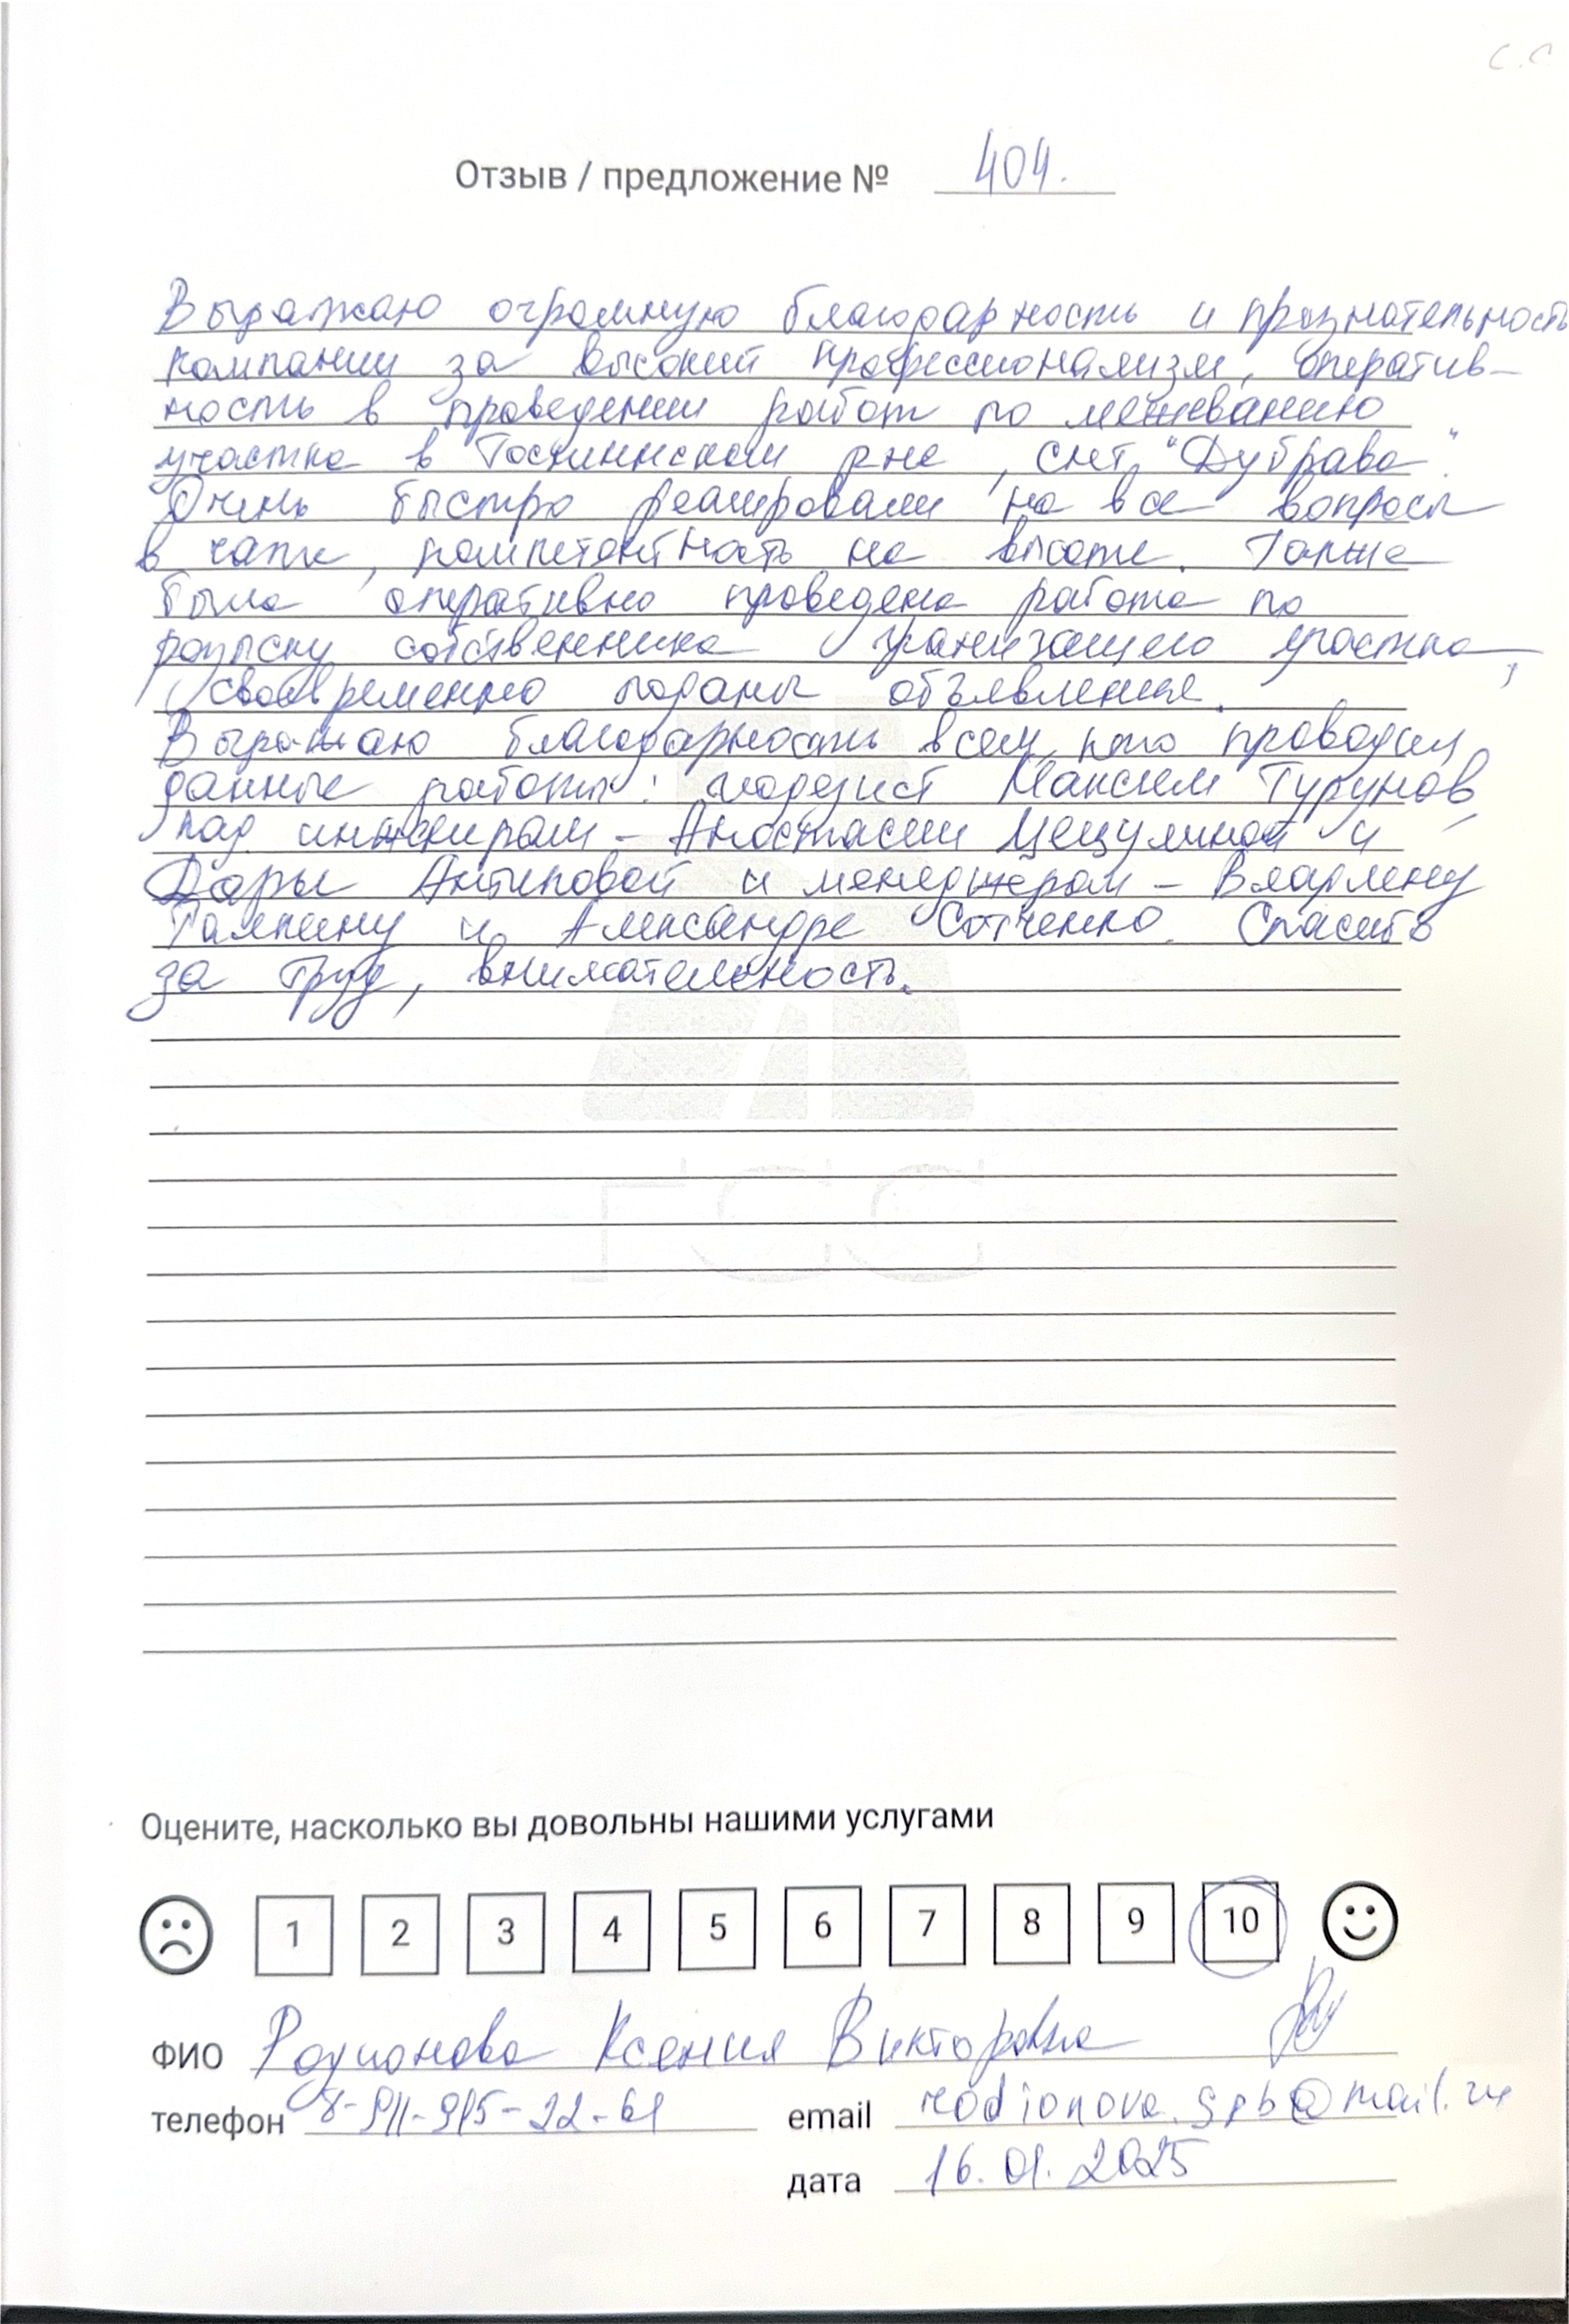 с.с
Отзыв / предложение № 404.
Выражаю огромную благодарность и признательность
компании за высокий профессионализм, оператив-
ность в проведении работ по межеванию
участка в Тосненском р-не, снт "Дубрава".
Очень быстро реагировали на все вопросы
в чате, компетентность на высоте. Также
была оперативно проведена работа по
розыску собственника граничащего участка,
своевременно поданы объявления.
Выражаю благодарность всем, кто проводил
данные работы: геодезист Максим Турунов,
кад. инженерам - Анастасии и
Дарье Антиповой и менеджерам - Владлену
Галкину и Александре Сотченко. Спасибо
за труд, внимательность.
ГСС
Оцените, насколько вы довольны нашими услугами
1 2 3 4 5 6 7 8 9 10
ФИО Родионова Ксения Викторовна
телефон 8-911-915-22-61 email rodionova.spb@mail.ru
дата 16.01.2025